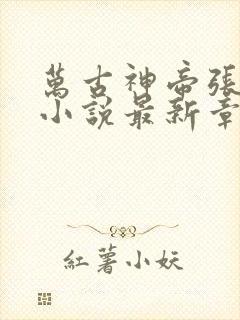 萬古神帝張
小說最新章
紅薯小妖